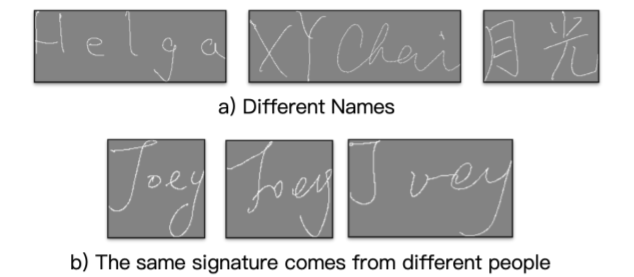 Helga XYChai 月光
a) Different Names
Joey Joey Joey
b) The same signature comes from different people